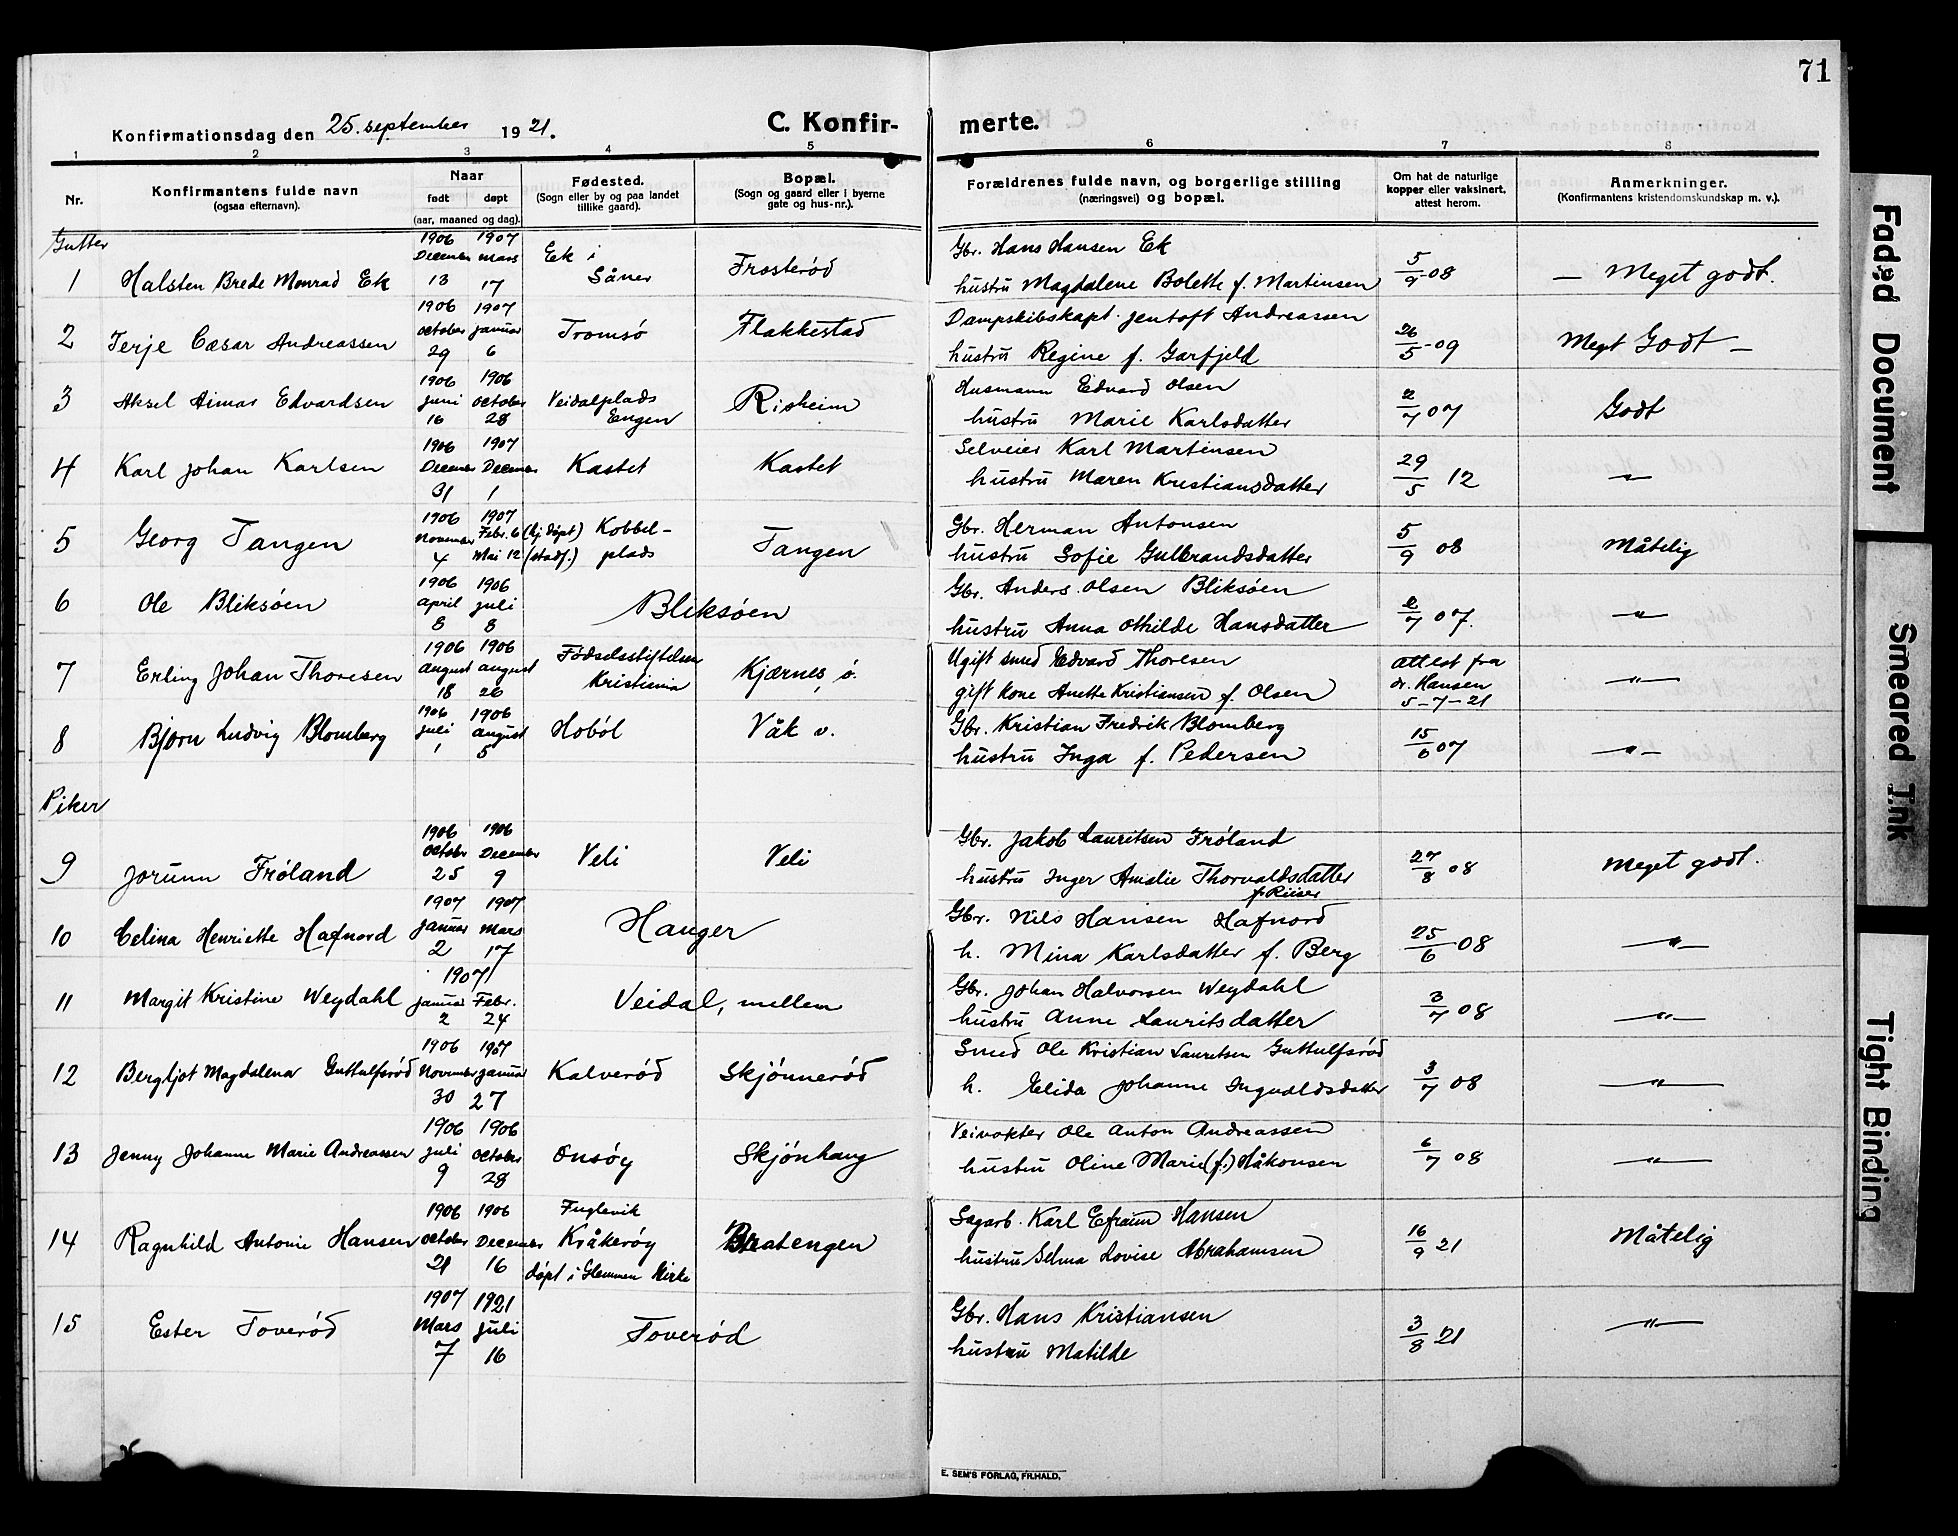 71
Konfirmationsdag den 25. september 1921.
C. Konfir-
merte.
1 2 3 4 5 6 7 8
Nr.
Konfirmantens fulde navn
(ogsaa efternavn).
Naar
født døpt
(aar, maaned og dag).
Fødested.
(Sogn eller by og paa landet
tillike gaard).
Bopæl.
(Sogn og gaard eller i byerne
gate og hus-nr.).
Forældrenes fulde navn, og borgerlige stilling
(næringsvei) og bopæl.
Om hat de naturlige
kopper eller vaksinert,
attest herom.
Anmerkninger.
(Konfirmantens kristendomskundskap m. v.).
Gutter
1906 1907 Ek i Gbr. Hans Hansen Ek
1 Halsten Brede Monrad Ek Decemer mars Såner Frosterød 5/9-08 — Meget godt.
13 17 hustru Magdalene Bolette f. Martinsen
1906 1907 Dampskibskapt. Jentoft Andreassen
2 Terje Cæsar Andreassen october januar Tromsø Flakkestad 26/5-09 Meget Godt —
29 6 hustru Regine f. Garfjeld
1906 1906 Husmann Edvard Olsen
3 Aksel Aimar Edvardsen juni october Veidalplads Risheim 2/7 07 Godt
16 28 Engen hustru Marie Karlsdatter
1906 1907 Selveier Karl Martinsen
4 Karl Johan Karlsen Decemer Decemer Kastet Kastet 29/5 12 — " —
31 1 hustru Maren Kristiansdatter
1906 1907 Gbr. Herman Antonsen
5 Georg Tangen November Febr. 6 (hj. døpt) Kobbel- Tangen 5/9 08 Måtelig
4 Mai 12 (stadf.) plads hustru Sofie Gulbrandsdatter
1906 1906 Gbr. Anders Olsen Bliksøen
6 Ole Bliksøen april juli Bliksøen 2/7 07. — " —
8 8 hustru Anna Othilde Hansdatter
1906 1906 Fødselsstiftelsen Ugift smed Edvard Thoresen attest fra
7 Erling Johan Thoresen august august Kristiania Kjærnes, ø. dr. Hansen — " —
18 26 gift kone Anette Kristiansen f. Olsen 5-7-21
1906 1906 Gbr. Kristian Fredrik Blomberg
8 Bjørn Ludvig Blomberg juli august Hobøl Våk v. 15/6 07 — " —
1 5 hustru Inga f. Pedersen
Piker
1906 1906 Gbr. Jakob Lauritsen Frøland
9 Jorunn Frøland October December Veli Veli 27/8 08 Meget godt.
25 9 hustru Inger Amalie Thorvaldsdatter
f. Riiser
1907 1907 Gbr. Nils Hansen Hafnord
10 Celina Henriette Hafnord januar mars Hauger 25/6 08 — " —
2 17 h. Mina Karlsdatter f. Berg
1907 Gbr. Johan Halvorsen Weydahl
11 Margit Kristine Weydahl januar Febr. Veidal, mellem 3/7 08 — " —
2 24 hustru Anne Lauritsdatter
1906 1907 Smed Ole Kristian Lauritsen Guttulfsrød
12 Bergljot Magdalena Guttulfsrød November januar Kalverød Skjønnerød 3/7 08 — " —
30 27 h. Elida Johanne Ingvaldsdatter
1906 1906 Veivokter Ole Anton Andreassen
13 Jenny Johanne Marie Andreassen juli october Onsøy Skjønhaug 6/7 08 — " —
9 28 hustru Oline Marie (f.) Håkonsen
1906 1906 Fuglevik Sagarb. Karl Efraim Hansen
14 Ragnhild Antonie Hansen october December Kråkerøy Bratengen 16/9 21 Måtelig
21 16 døpt i Glemmen Kirke hustru Selma Lovise Abrahamsen
1907 1921 Gbr. Hans Kristiansen
15 Ester Toverød Mars juli Toverød 3/8 21 — " —
7 16 hustru Matilde
E. SEM'S FORLAG, FR.HALD.
Faded Document
Smeared Ink
Tight Binding